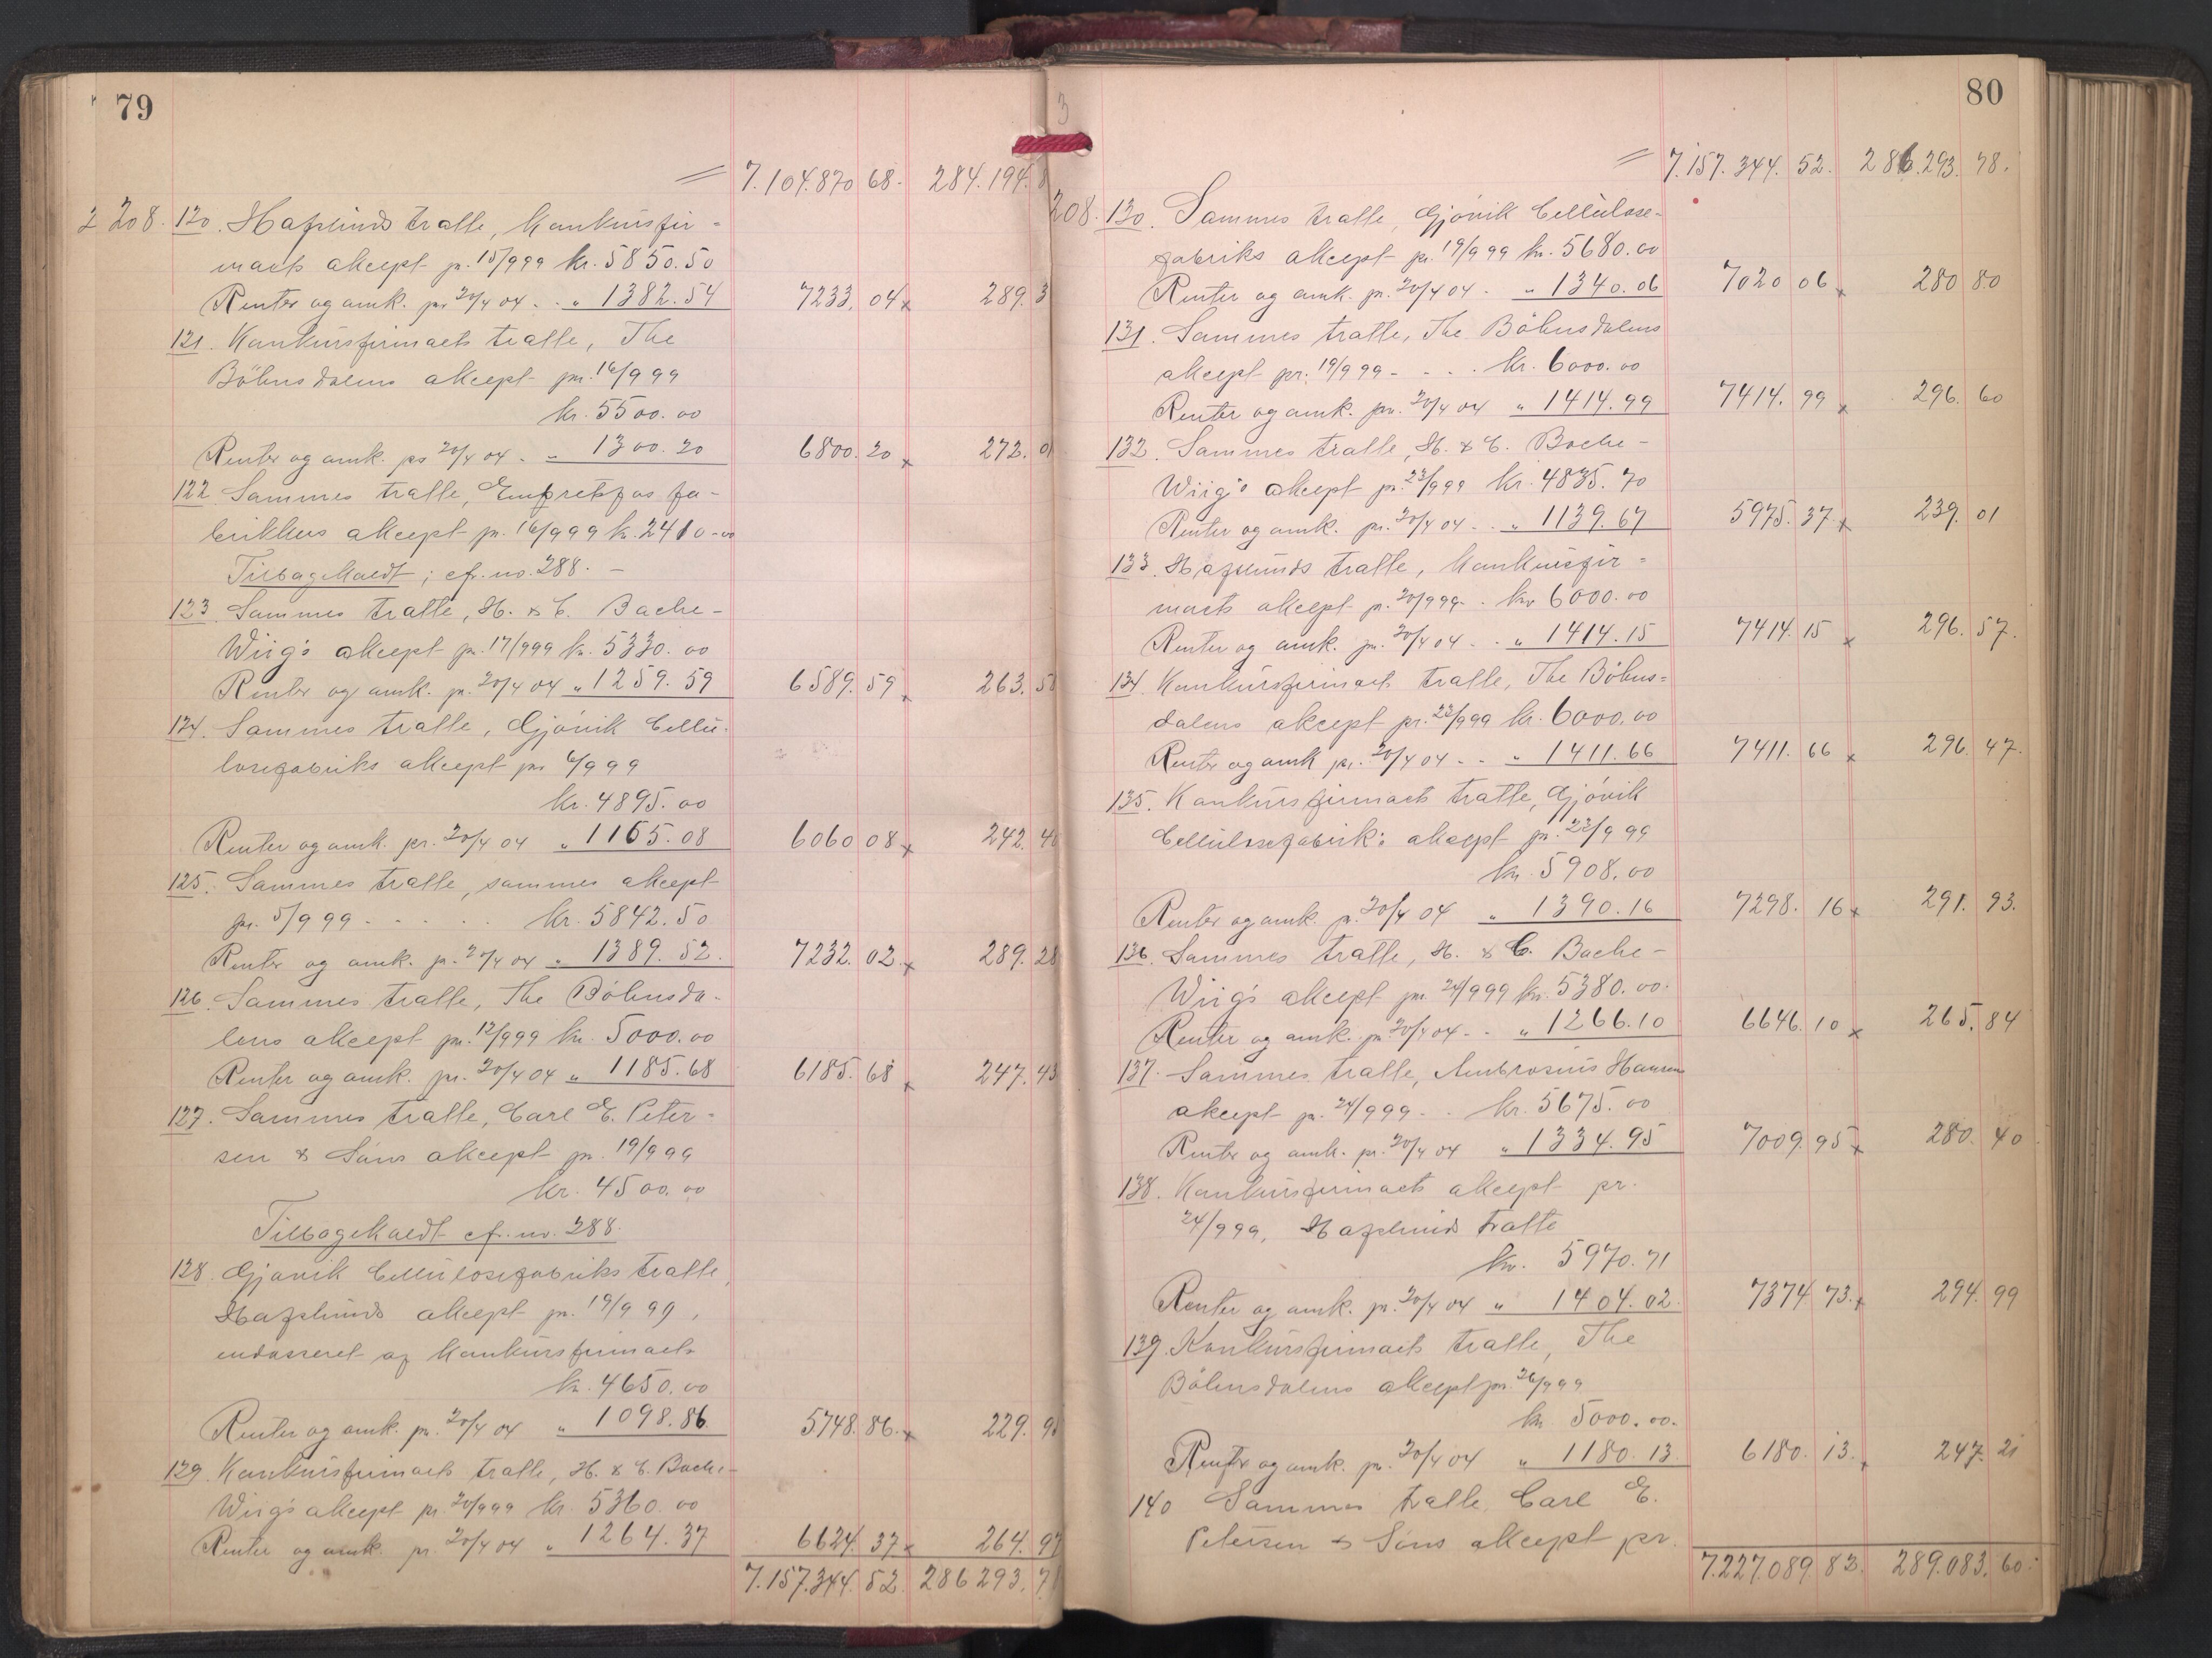 79
7.104.870 68. 284.194.8
2 208. 120. Hafslunds tratte, konkursfir=
maets aksept pr. 15/9 99 kr. 5850.50
Renter og omk. pr. 20/4 04 . . „ 1382.54 7233.04 x 289.3
121. Konkursfirmaets tratte, The
Böhnsdalens aksept pr. 16/9 99
kr. 5500.00
Renter og omk. pr 20/4 04 . „ 1300.20 6800.20 x 272.01
122. Sammes tratte, Embretsfos fa-
brikkers aksept pr. 16/9 99 kr. 2410.00
Tilbagekaldt; cfr. no. 288. -
123. Sammes tratte, H. & C. Bache-
Wiig's aksept pr. 17/9 99 kr. 5330.00
Renter og omk. pr. 20/4 04 „ 1259.59 6589.59 x 263.58
124. Sammes tratte, Gjövik Cellu-
losefabriks aksept pr 6/9 99
kr. 4895.00
Renter og omk. pr. 20/4 04 „ 1165.08 6060 08 x 242.40
125. Sammes tratte, sammes aksept
pr. 5/9 99 - - - - - kr. 5842.50
Renter og omk. pr. 20/4 04 „ 1389.52. 7232.02. x 289.28
126. Sammes tratte, The Böhnsda-
lens aksept pr. 12/9 99 kr. 5000.00
Renter og omk. pr. 20/4 04 „ 1185.68 6185.68 x 247.43
127. Sammes tratte, Carl E. Peter=
sen & Söns aksept pr. 19/9 99
kr. 4500.00
Tilbagekaldt cfr. no. 288.
128. Gjövik Cellulosefabriks tratte,
Hafslunds aksept pr. 19/9 99,
endosseret af konkursfirmaet
kr. 4650.00
Renter og omk. pr. 20/4 04 „ 1098.86. 5748.86. x 229.95
129. Konkursfirmaets tratte, H. & C. Bache-
Wiigs aksept pr. 20/9 99 kr. 5360.00
Renter og omk. pr. 20/4 04 „ 1264.37 6624.37 x 264.97
7.157.344.52. 286 293.7
3
80
7.157.344.52. 286.293.78.
208. 130. Sammes tratte, Gjövik Cellulose-
fabriks aksept pr. 19/9 99 kr. 5680.00
Renter og omk. pr. 20/4 04 . „ 1340.06 7020 06 x 280 80
131. Sammes tratte, The Böhnsdalens
aksept pr. 19/9 99 - - . . kr. 6000.00
Renter og omk. pr. 20/4 04 „ 1414.99 7414.99 x 296.60
132. Sammes tratte, H. & C. Bache-
Wiig's aksept pr. 23/9 99 kr. 4835.70
Renter og omk. pr. 20/4 04 - . „ 1139.67 5975.37 x 239.01
133. Hafslunds tratte, konkursfir=
maets aksept pr. 20/9 99 - . kr 6000.00
Renter og omk. pr. 20/4 04 . . „ 1414.15 7414.15 x 296.57.
134. Konkursfirmaets tratte, The Böhns=
dalens aksept pr. 23/9 99 kr. 6000.00
Renter og omk pr. 20/4 04 . . „ 1411.66 7411.66 x 296.47.
135. Konkursfirmaets tratte, Gjövik
Cellulosefabriks aksept pr. 23/9 99
kr. 5908.00
Renter og omk. pr. 20/4 04 „ 1390.16 7298.16 x 291.93.
136. Sammes tratte, H. & C. Bache-
Wiig's aksept pr. 24/9 99 kr. 5380.00.
Renter og omk. pr. 20/4 04 . . „ 1266.10 6646.10 x 265.84
137. Sammes tratte, Ambrosius Hansens
aksept pr. 24/9 99 . . kr. 5675.00
Renter og omk. pr. 20/4 04 „ 1334.95 7009.95 x 280.40
138. Konkursfirmaets aksept pr.
24/9 99, Hafslunds tratte
kr. 5970.71
Renter og omk. pr. 20/4 04 „ 1404.02. 7374.73. x 294.99
139. Konkursfirmaets tratte, The
Böhnsdalens aksept pr. 26/9 99
kr 5000.00.
Renter og omk. pr. 20/4 04 „ 1180.13. 6180.13. x 247.21
140 Sammes tratte Carl E.
Petersen & Söns aksept pr.
7.227.089 83. 289.083.60.